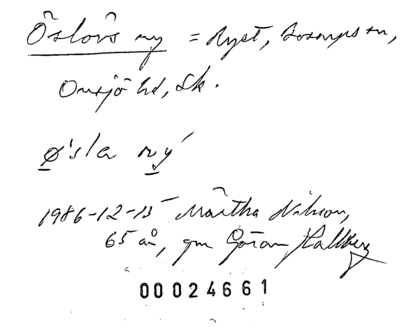 Öslövs ny = Ryet, Bosarps sn,
Onsjö hd, Sk.
ø'slɑ ny'
1986-12-15 Märtha Nilsson,
65 år, gm Göran Hallberg
00024661